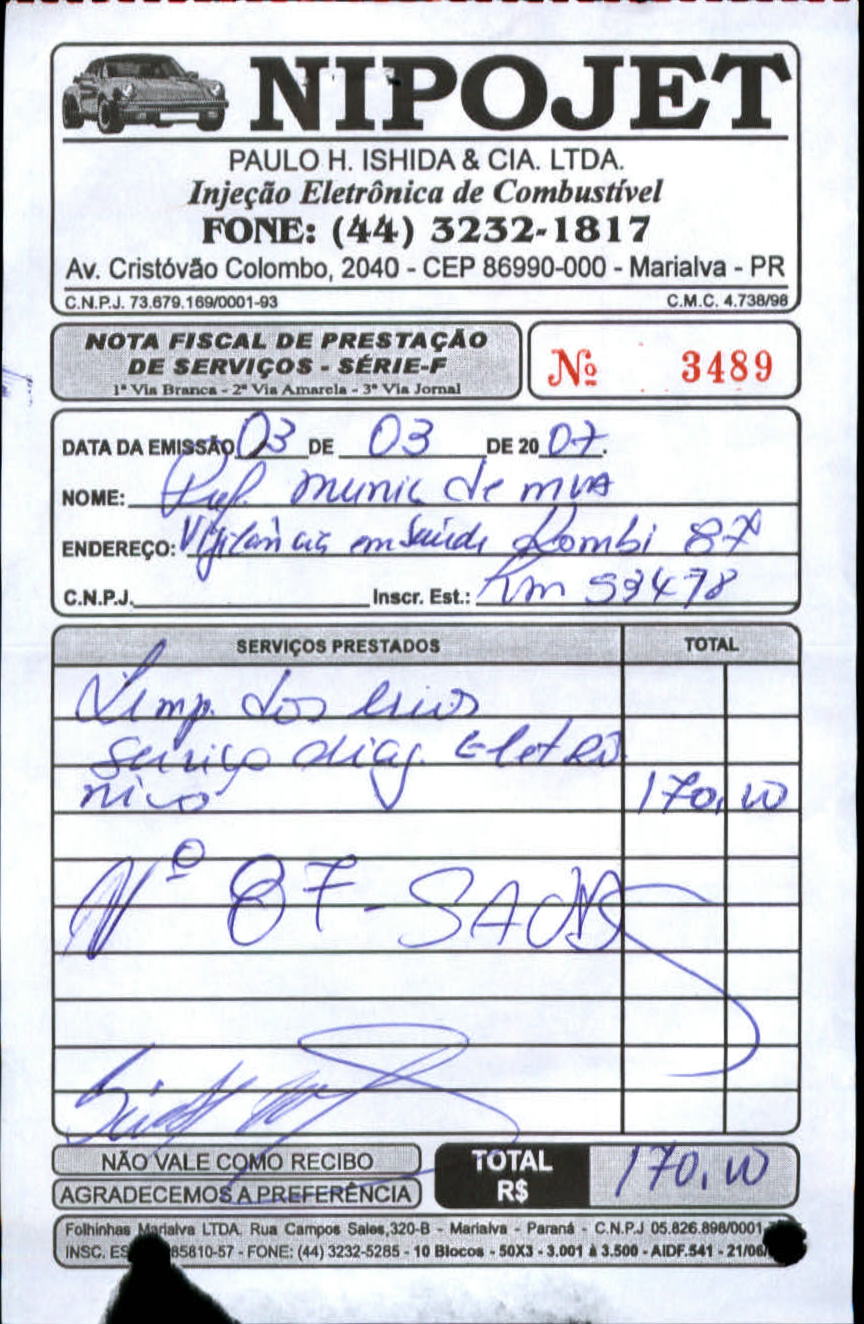 NIPOJET
PAULO H. ISHIDA & CIA. LTDA.
Injeção Eletrônica de Combustível
FONE: (44) 3232-1817
Av. Cristóvão Colombo, 2040 - CEP 86990-000 - Marialva - PR
C.N.P.J. 73.679.169/0001-93 C.M.C. 4.738/98
NOTA FISCAL DE PRESTAÇÃO
DE SERVIÇOS - SÉRIE-F
1ª Via Branca - 2ª Via Amarela - 3ª Via Jornal
Nº 3489
DATA DA EMISSÃO 03 DE 03 DE 20 07.
NOME: Pref. Munic de MVA
ENDEREÇO: Vigilância em Saúde Kombi 87
C.N.P.J. Inscr. Est.: Km 59478
SERVIÇOS PRESTADOS TOTAL
Limp. dos bicos
Serviço diag. Eletrô
nico 170,00
Nº 87-
NÃO VALE COMO RECIBO
AGRADECEMOS A PREFERÊNCIA
TOTAL
R$ 170,00
Folhinhas Marialva LTDA. Rua Campos Sales,320-B - Marialva - Paraná - C.N.P.J 05.826.898/0001
INSC. 85810-57 - FONE: (44) 3232-5285 - 10 Blocos - 50X3 - 3.001 à 3.500 - AIDF.541 - 21/06/